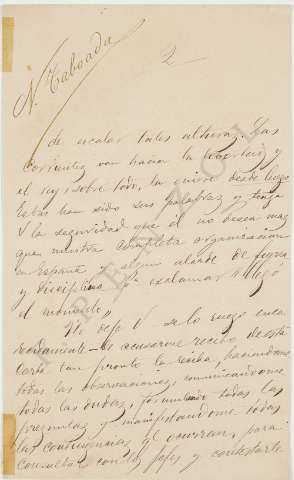 N. Taboada
2
de escalar tales alturas. Las
corrientes van hacia la libertad y
el rey, sobre todo, la quiere desde luego
Estas han sido sus palabras y tenga
V la seguridad que él no desea mas
que nuestra completa organizacion
en España y algun alarde de fuerza
y disciplina pª exclamar "llegó
el momento"
No deje V de lo ruego
de acusarme recibo de esta
carta tan pronto la reciba, haciendome
todas las observaciones, comunicandome
todas las dudas, formulando todas las
preguntas y manifestandome todas
las contingencias qe ocurran, para
consultar con los Jefes y contestarle